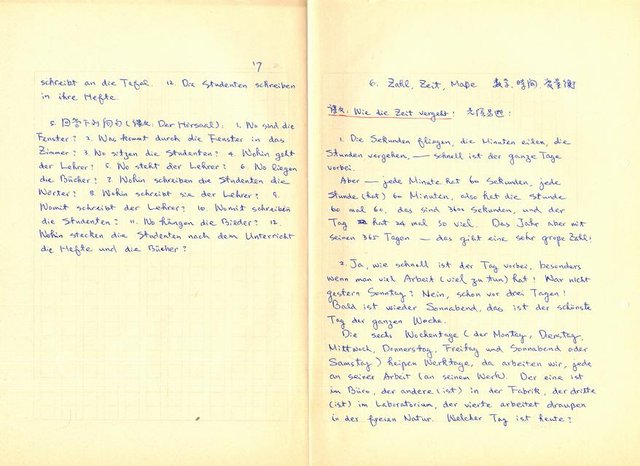 17
schreibt an die Tafel. 12. Die Studenten schreiben
in ihre Hefte.
5. 回答下列问句 (课文: Der Hörsaal): 1. Wo sind die
Fenster? 2. Was kommt durch die Fenster in das
Zimmer? 3. Wo sitzen die Studenten? 4. Wohin geht
der Lehrer? 5. Wo steht der Lehrer? 6. Wo liegen
die Bücher? 7. Wohin schreiben die Studenten die
Wörter? 8. Wohin schreibt sie der Lehrer? 9.
Womit schreibt der Lehrer? 10. Womit schreiben
die Studenten? 11. Wo hängen die Bilder? 12.
Wohin stecken die Studenten nach dem Unterricht
die Hefte und die Bücher?
6. Zahl, Zeit, Maße 数字, 时间, 度量衡
课文: Wie die Zeit vergeht! 光阴
1. Die Sekunden fliegen, die Minuten eilen, die
Stunden vergehen, — schnell ist der ganze Tage
vorbei.
Aber — jede Minute hat 60 Sekunden, jede
Stunde (hat) 60 Minuten, also hat die Stunde
60 mal 60, das sind 3600 Sekunden, und der
Tag hat 24 mal so viel. Das Jahr aber mit
seinen 365 Tagen — das gibt eine sehr große Zahl!
2. Ja, wie schnell ist der Tag vorbei, besonders
wenn man viel Arbeit (viel zu tun) hat! War nicht
gestern Sonntag? Nein, schon vor drei Tagen!
Bald ist wieder Sonnabend, das ist der schönste
Tag der ganzen Woche.
Die sechs Wochentage (der Montag, Dienstag,
Mittwoch, Donnerstag, Freitag und Sonnabend oder
Samstag) heißen Werktage, da arbeiten wir, jede
an seiner Arbeit (an seinem Werk). Der eine ist
im Büro, der andere (ist) in der Fabrik, der dritte
(ist) im Laboratorium, der vierte arbeitet draußen
in der freien Natur. Welcher Tag ist heute?